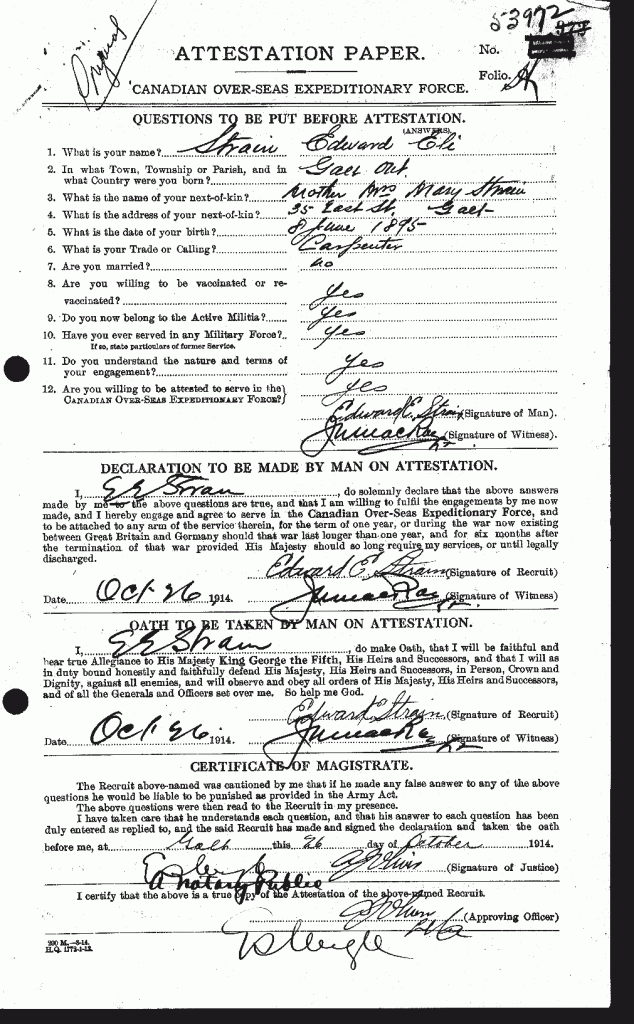 Original
53972
ATTESTATION PAPER.
No.
Folio.
CANADIAN OVER-SEAS EXPEDITIONARY FORCE.
QUESTIONS TO BE PUT BEFORE ATTESTATION.
(ANSWERS)
1. What is your name? Strain Edward Eli
2. In what Town, Township or Parish, and in what Country were you born? Galt Ont.
3. What is the name of your next-of-kin? Mother Mrs Mary Strain
4. What is the address of your next-of-kin? 35 East St. Galt
5. What is the date of your birth? 8 June 1895
6. What is your Trade or Calling? Carpenter
7. Are you married? no
8. Are you willing to be vaccinated or re-vaccinated? Yes
9. Do you now belong to the Active Militia? Yes
10. Have you ever served in any Military Force? Yes
If so, state particulars of former Service.
11. Do you understand the nature and terms of your engagement? Yes
12. Are you willing to be attested to serve in the CANADIAN OVER-SEAS EXPEDITIONARY FORCE? Yes
Edward E. Strain (Signature of Man).
(Signature of Witness).
DECLARATION TO BE MADE BY MAN ON ATTESTATION.
I, E E Strain, do solemnly declare that the above answers
made by me to the above questions are true, and that I am willing to fulfil the engagements by me now
made, and I hereby engage and agree to serve in the Canadian Over-Seas Expeditionary Force, and
to be attached to any arm of the service therein, for the term of one year, or during the war now existing
between Great Britain and Germany should that war last longer than one year, and for six months after
the termination of that war provided His Majesty should so long require my services, or until legally
discharged.
Edward E. Strain (Signature of Recruit)
Date Oct 26 1914. (Signature of Witness)
OATH TO BE TAKEN BY MAN ON ATTESTATION.
I, E E Strain, do make Oath, that I will be faithful and
bear true Allegiance to His Majesty King George the Fifth, His Heirs and Successors, and that I will as
in duty bound honestly and faithfully defend His Majesty, His Heirs and Successors, in Person, Crown and
Dignity, against all enemies, and will observe and obey all orders of His Majesty, His Heirs and Successors,
and of all the Generals and Officers set over me. So help me God.
Edward Strain (Signature of Recruit)
Date Oct 26 1914. (Signature of Witness)
CERTIFICATE OF MAGISTRATE.
The Recruit above-named was cautioned by me that if he made any false answer to any of the above
questions he would be liable to be punished as provided in the Army Act.
The above questions were then read to the Recruit in my presence.
I have taken care that he understands each question, and that his answer to each question has been
duly entered as replied to, and the said Recruit has made and signed the declaration and taken the oath
before me, at Galt this 26 day of October 1914.
(Signature of Justice)
A Notary Public
I certify that the above is a true copy of the Attestation of the above-named Recruit.
(Approving Officer)
200 M.—8-14.
H.Q. 1772-1-13.